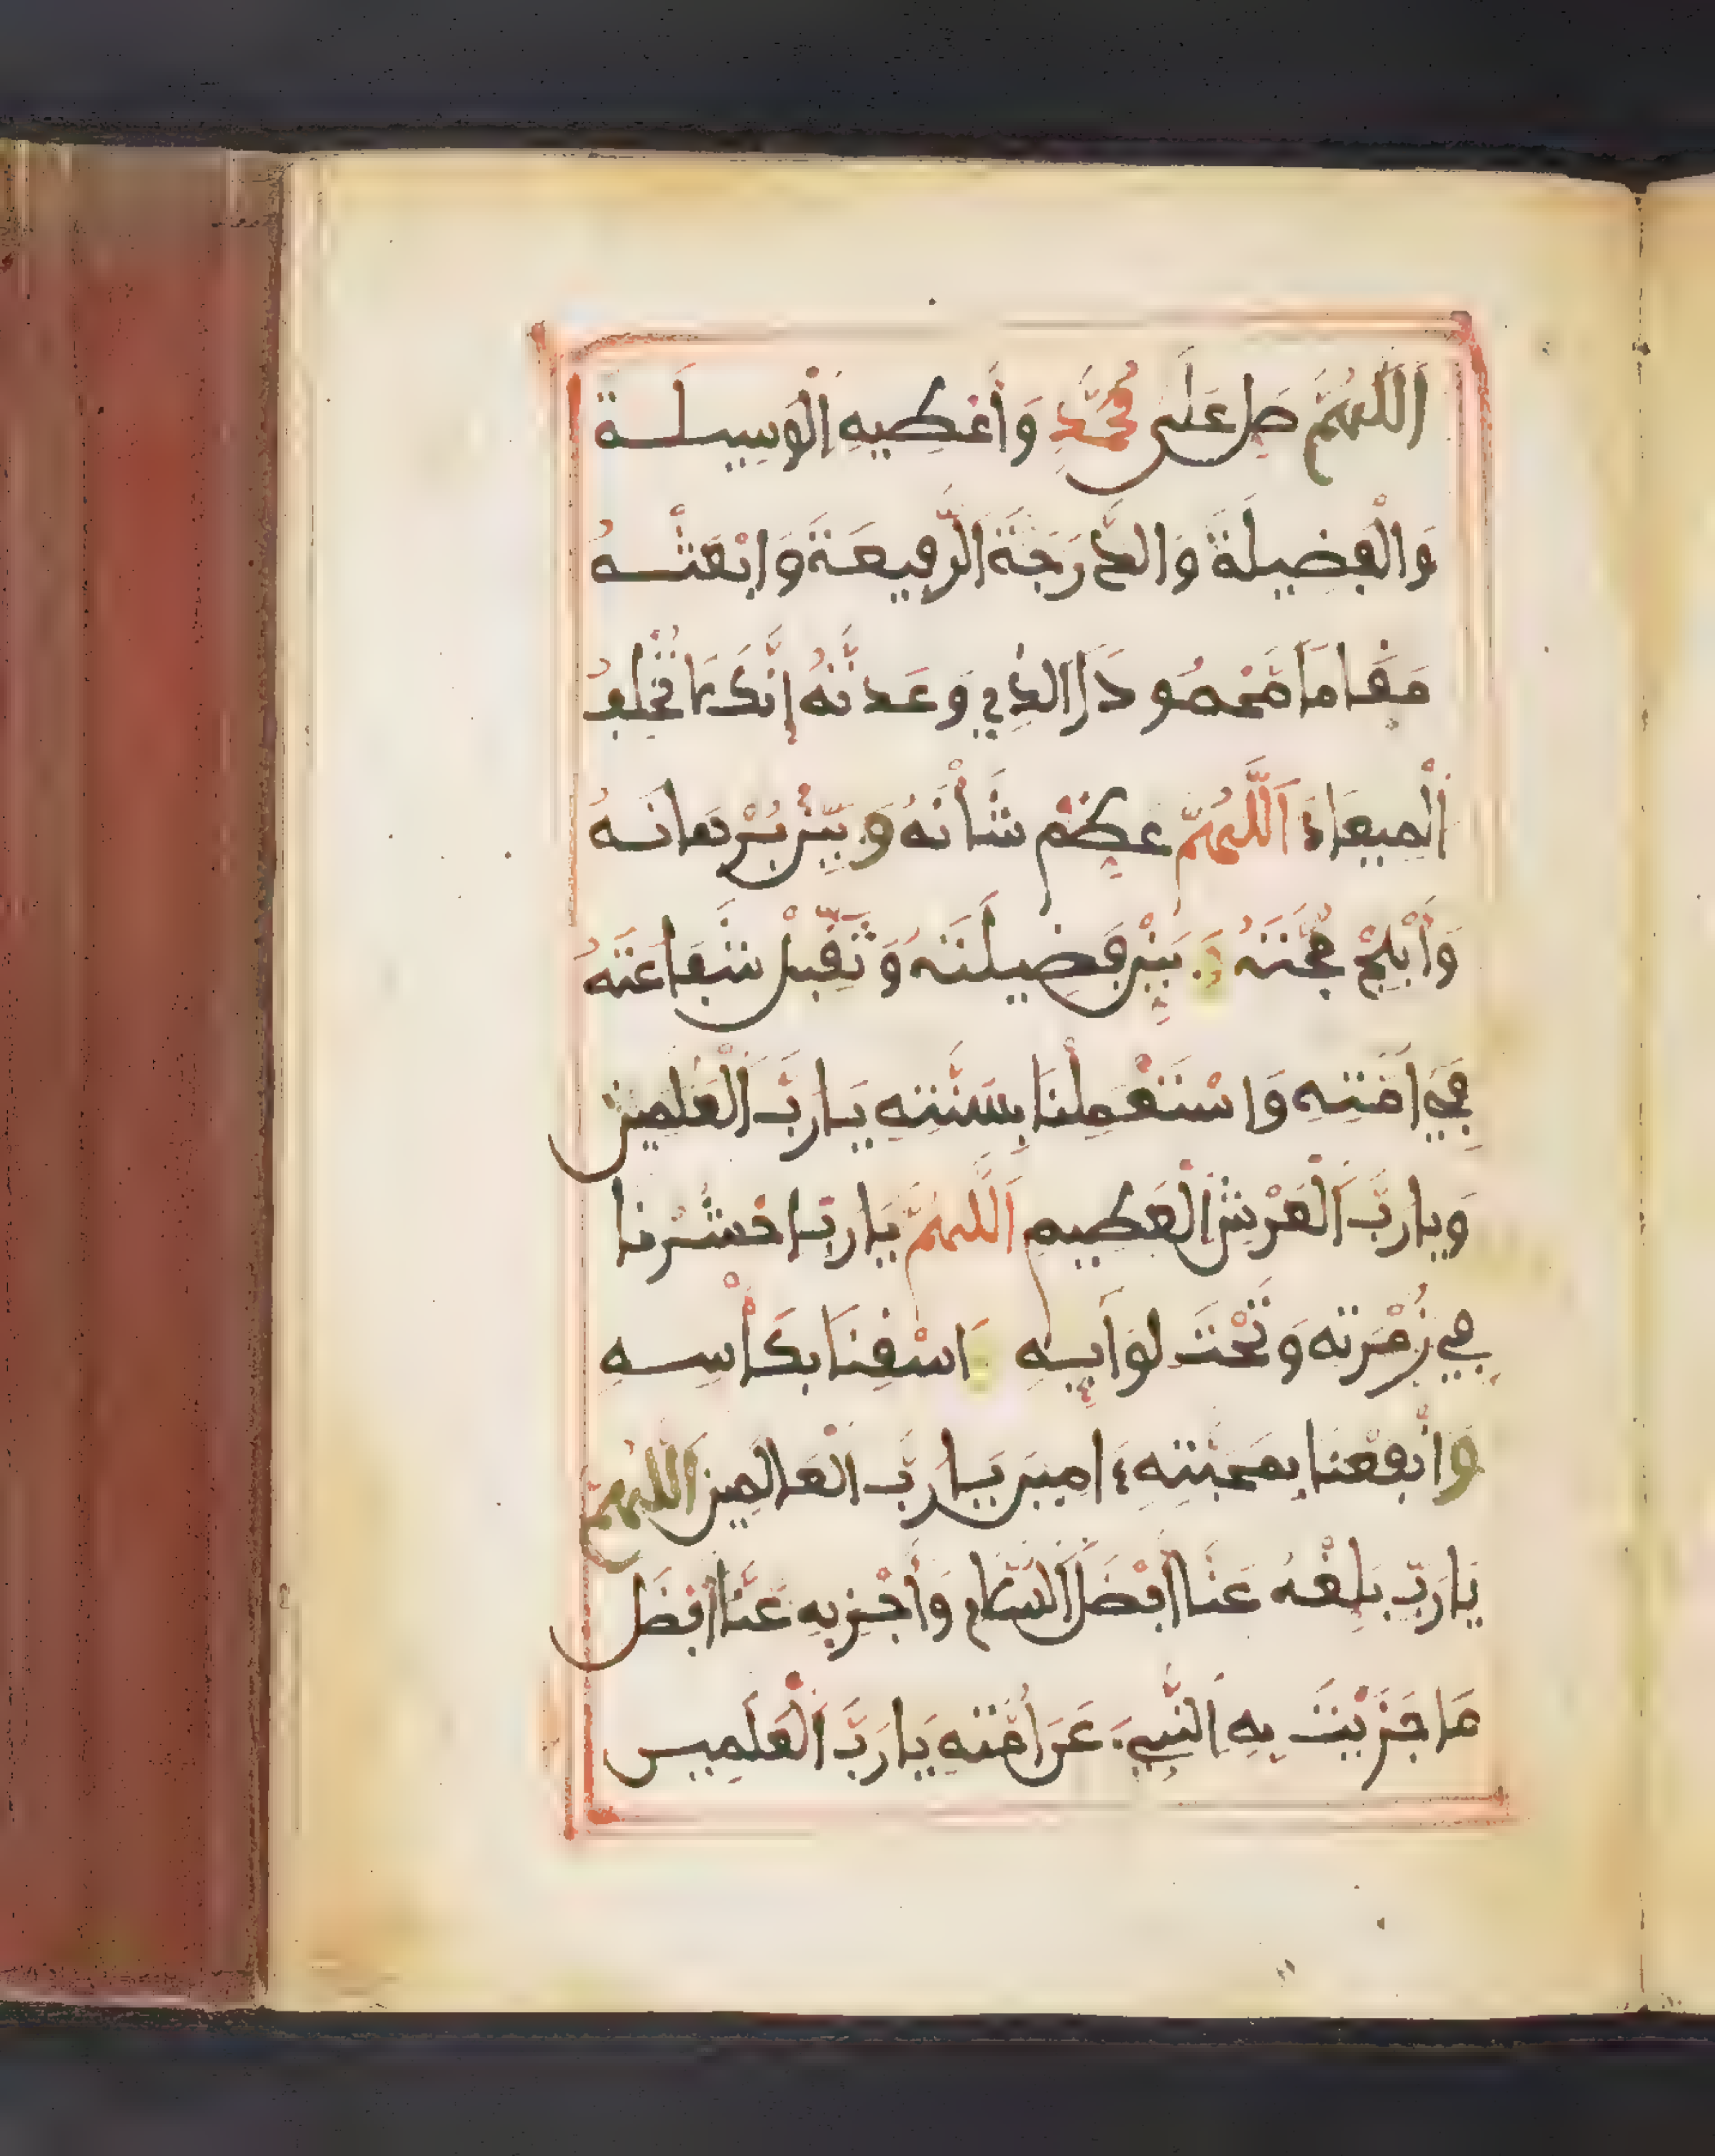 اَللَّهُمَّ صَلِّ عَلَى مُحَمَّدٍ وَأَعْطِيهِ اَلْوَسِيلَة
وَالْفَضِيلَةَ وَالدَّرَجَةَ اَلرَّفِيعَةَ وَابْعَثْهُ
مَقَامًا مَّحْمُودًا اَلذِي وَعَدتَّهُ إِنَّكَ لَا تُخْلِفُ
اَلْمِيعَادَ اَللَّهُمَّ عَظِّمْ شَأْنَهُ وَبَيِّنْ بُرْهَانَهُ
وَأَبْلِجْ حُجَّتَهُ وَبَيِّنْ فَضِيلَتَهُ وَتَقَبَّلْ شَفَاعَتَهُ
فِي أُمَّتِهِ وَاسْتَعْمِلْنَا بِسُنَّتِهِ يَا رَبَّ اَلْعَلَمِين
وَيَا رَبَّ اَلْعَرْشِ اَلْعَظِيمِ اَللَّهُمَّ يَا رَبِّ احْشُرْنَا
فِي زُمْرَتِهِ وَتَحْتَ لِوَايِهِ وَاسْقِنَا بِكَأْسِهِ
وَانْفَعْنَا بِمَحَبَّتِهِ ءَامِينَ يَا رَبَّ الْعَالَمِينَ اَللَّهُمَّ
يَا رَبِّ بَلِّغْهُ عَنَّا أَفْضَلَ اَلسَّلَامِ وَأَجْزِيهِ عَنَّا أَفْضَلَ
مَا جَزَيْتَ بِهِ اَلنَّبِيَّ عَنْ أُمَّتِهِ يَا رَبَّ اَلْعَلَمِين